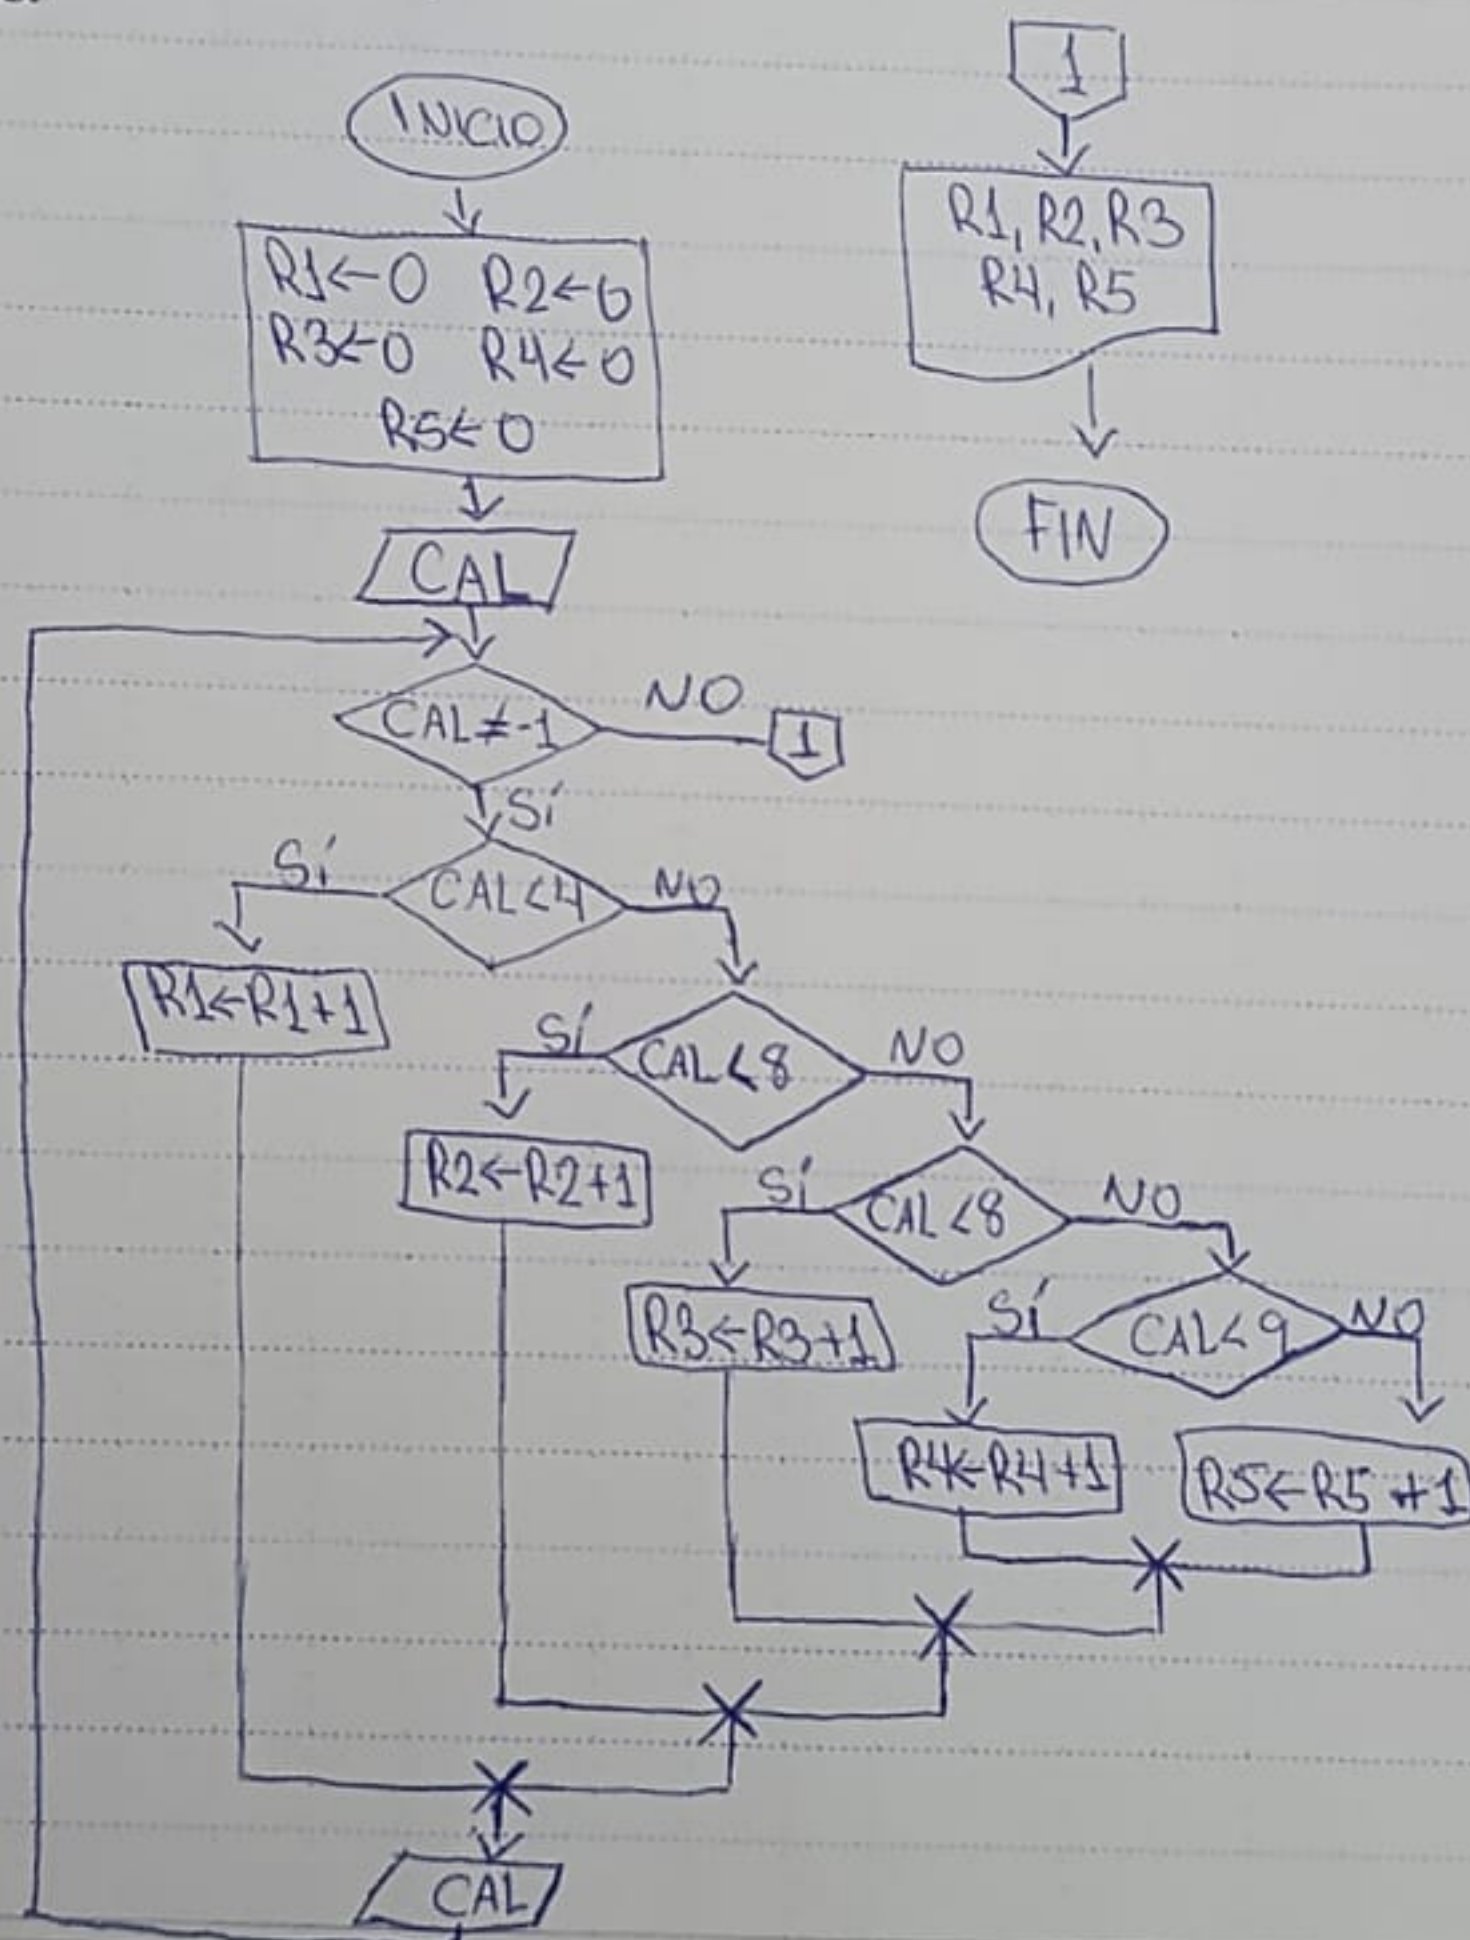 INICIO
R1←0 R2←0
R3←0 R4←0
R5←0
CAL
CAL≠-1
NO
1
SÍ
CAL<4
SÍ
NO
R1←R1+1
CAL<8
SÍ
NO
R2←R2+1
CAL<8
SÍ
NO
R3←R3+1
CAL<9
SÍ
NO
R4←R4+1
R5←R5+1
CAL
1
R1, R2, R3
R4, R5
FIN